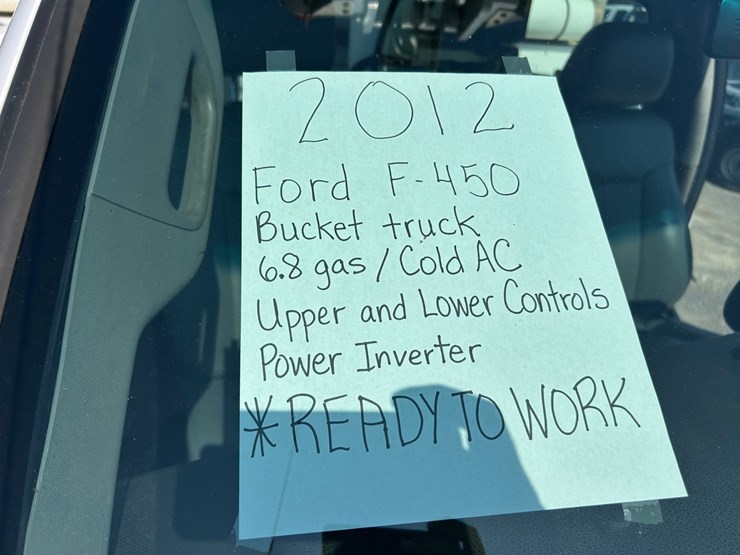 2012
Ford F-450
Bucket truck
6.8 gas / Cold AC
Upper and Lower Controls
Power Inverter
*READY TO WORK